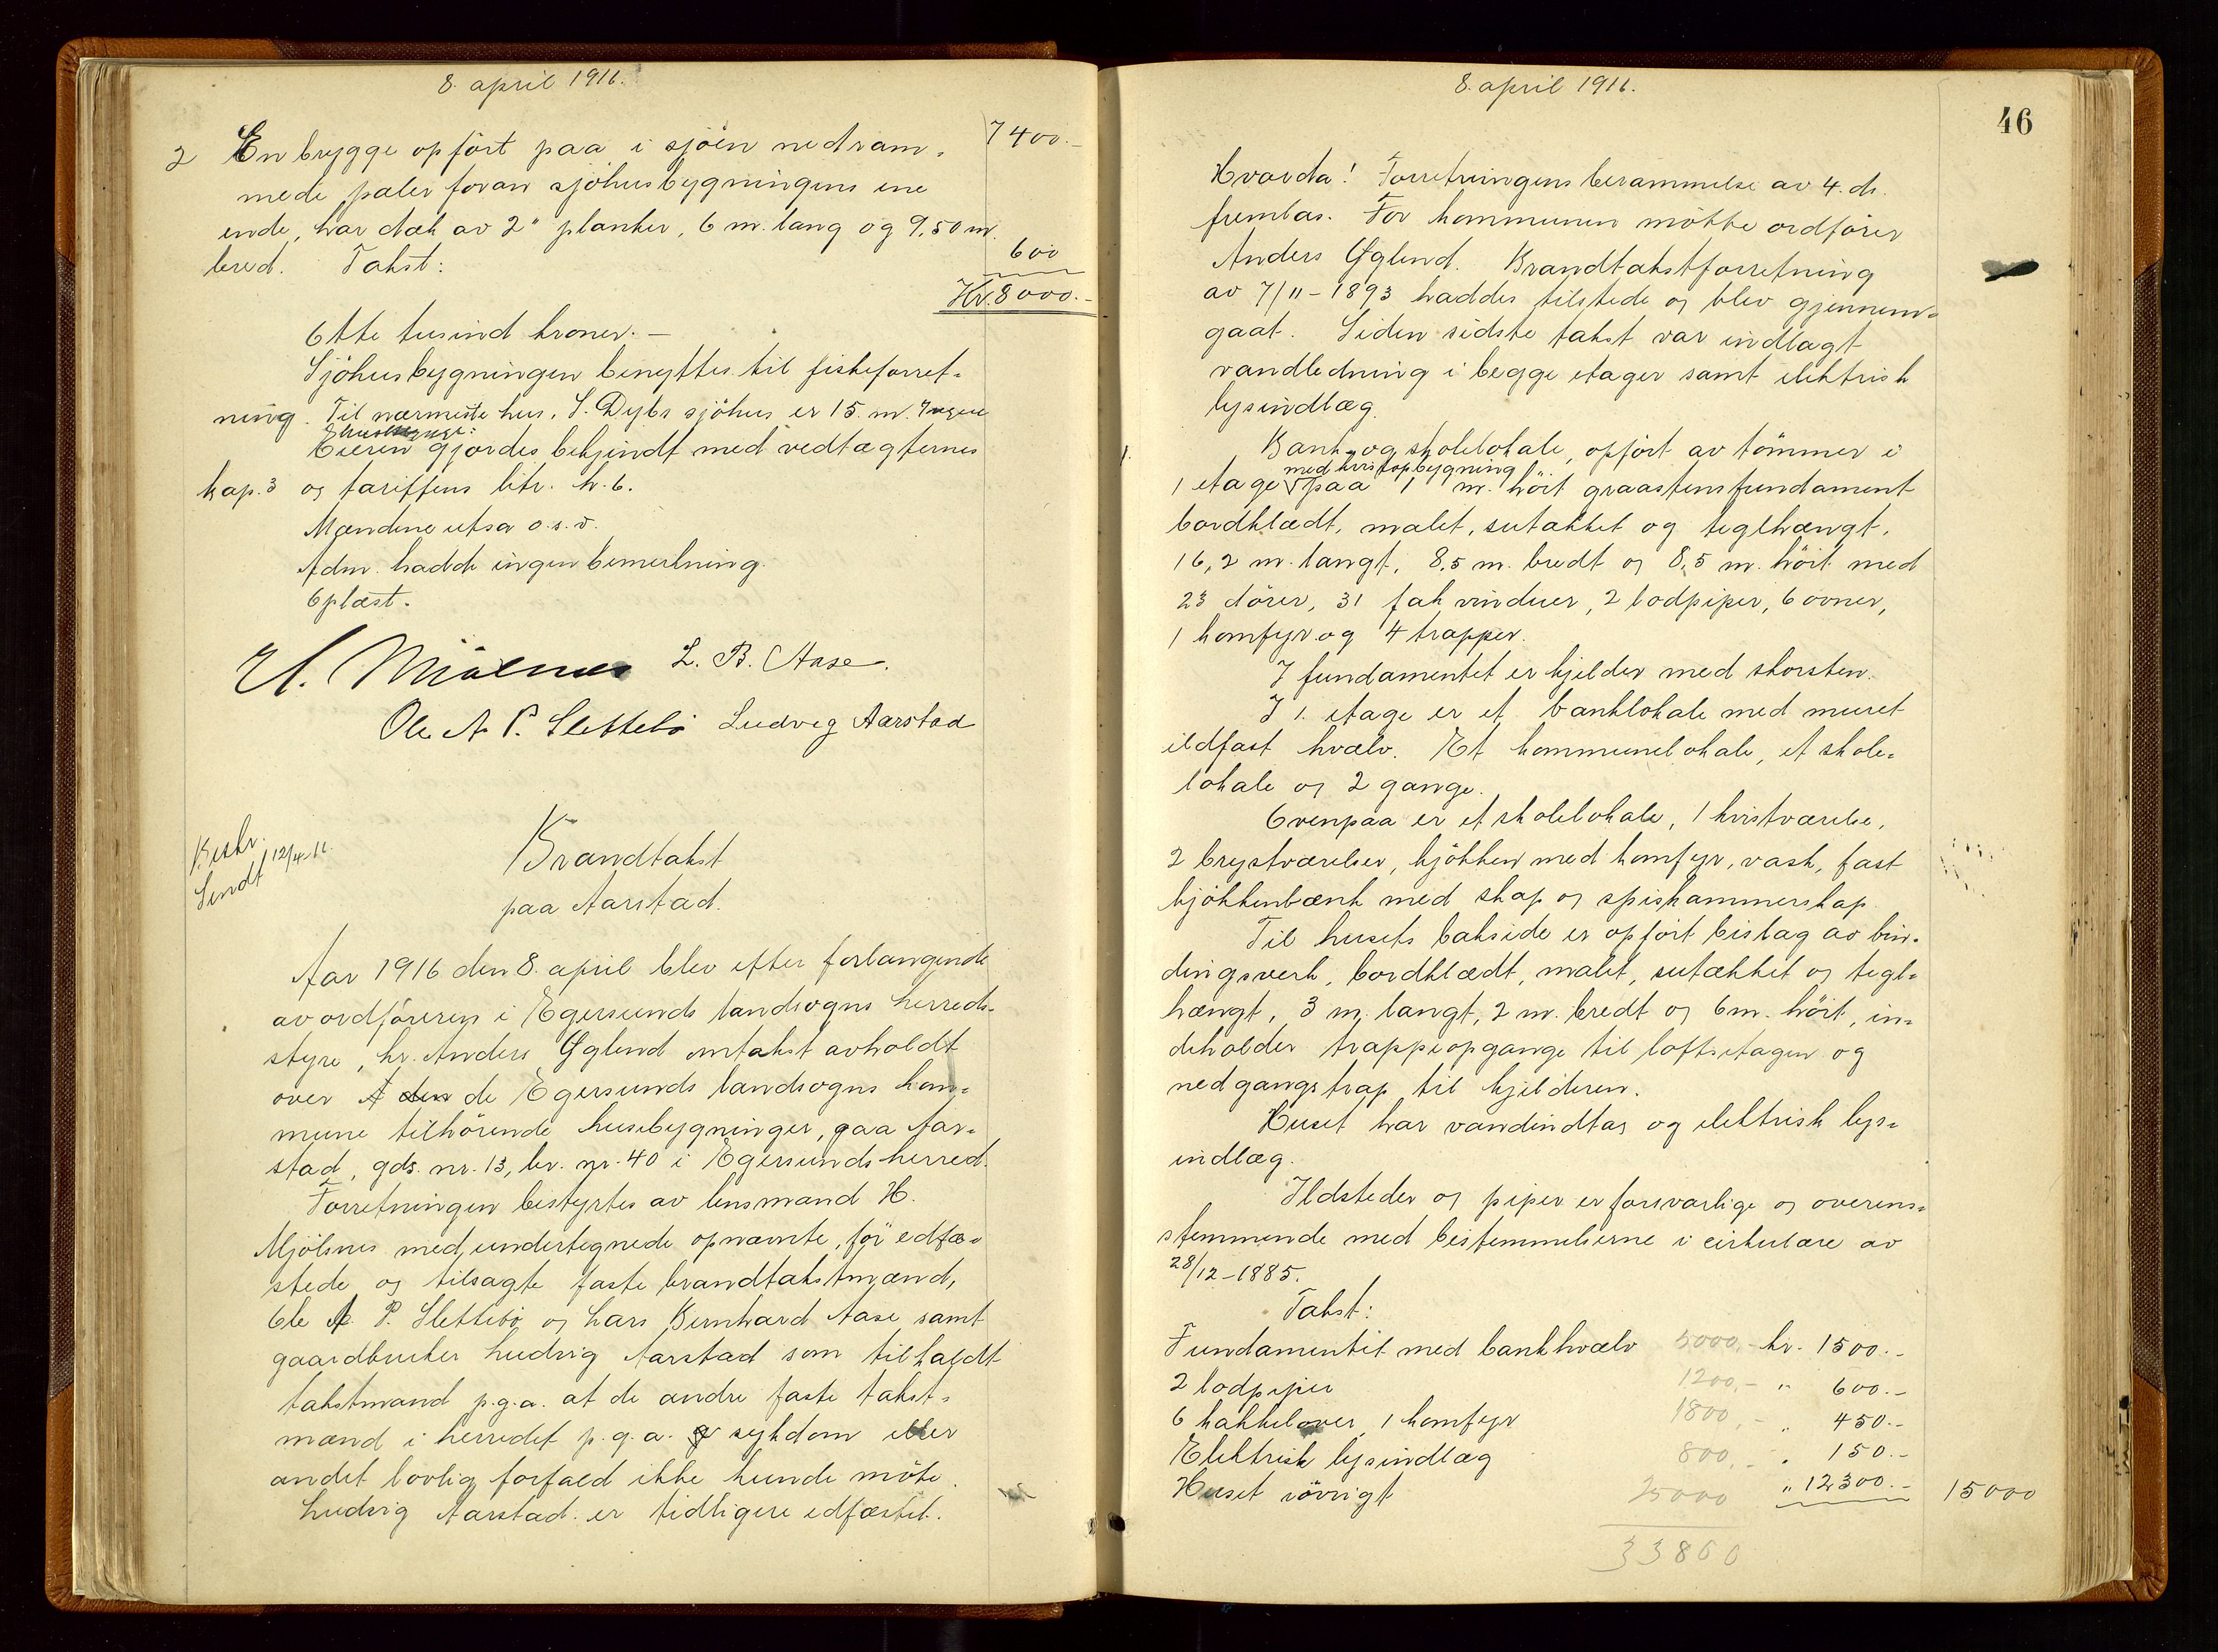 8. april 1916.
7400.-
2 En brygge opført paa i sjöen nedram=
mede pæler foran sjöhusbygningens ene
ende, har dæk av 2" planker, 6 m. lang og 9,50 m.
bred. Takst: 600
Kr. 8000.-
Otte tusind kroner. -
Sjöhusbygningen benyttes til fiskeforret=
ning. Til nærmeste hus, S. Dybs sjöhus er 15. m. Ingen
Eieren gjordes bekjendt med vedtægternes
kap. 3 og tariffens litr. h. 6.
Mændene utsa o.s.v.
Adm. hadde ingen bemerkning.
Oplæst.
H. Mjølsnes L. B. Aase.
Ole A. P. Slettebö Ludvig Aarstad
Beskr.
Sendt 12/4-16.
Brandtakst
paa Aarstad.
Aar 1916 den 8. april blev efter forlangende
av ordföreren i Egersunds landsogns herreds=
styre, hr. Anders Øglend omtakst avholdt
over de Egersunds landsogns kom=
mune tilhörende husebygninger, paa Aar=
stad, gds. nr. 13, br. nr. 40 i Egersunds herred.
Forretningen bestyrtes av lensmand H.
Mjölsnes med undertegnede opnævnte, för edfæ=
stede og tilsagte faste brandtakstmænd,
Ole A. P. Slettebö og Lars Bernhard Aase samt
gaardbruker Ludvig Aarstad som tilkaldt
takstmand p.g.a. at de andre faste takst=
mænd i herredet p.g.a. sykdom eller
andet lovlig forfald ikke kunde möte.
Ludvig Aarstad er tidligere edfæstet.
8. april 1916.
46
Hvorda! Forretningens berammelse av 4. ds.
fremlas. For kommunen mötte ordförer
Anders Øglend. Brandtakstforretning
av 7/11-1893 haddes tilstede og blev gjennem=
gaat. Siden sidste takst var indlagt
vandledning i begge etager samt elektrisk
lysindlæg.
1. Bank- og skolelokale, opført av tömmer i
med kvistopbygning
1 etage paa 1 m. höit graastensfundament
bordklædt, malet, sutækket og teglhængt,
16,2 m. langt, 8,5 m. bredt og 8,5 m. höit med
23 dörer, 31 fak vinduer, 2 lodpiper, 6 ovner,
1 komfyr og 4 trapper.
I fundamentet er kjelder med skorsten.
I 1. etage er et banklokale med muret
ildfast hvælv. Et kommunelokale, et skole=
lokale og 2 gange.
Ovenpaa er et skolelokale, 1 kvistværelse,
2 brystværelser, kjökken med komfyr, vask, fast
kjökkenbænk med skap og spiskammerskap.
Til husets bakside er opfört bislag av bin=
dingsverk, bordklædt, malet, sutækket og tegl=
hængt, 3 m. langt, 2 m. bredt og 6 m. höit, in=
deholder trappeopgange til loftsetagen og
nedgangstrap til kjelderen.
Huset har vandindtag og elektrisk lys=
indlæg.
Ildsteder og piper er forsvarlige og overens=
stemmende med bestemmelserne i cirkulære av
28/12-1885.
Takst:
Fundamentet med bankhvælv 5000,- kr. 1500.-
2 lodpiper 1200,- " 600.-
6 kakkelovner, 1 komfyr 1800,- " 450.-
Elektrisk lysindlæg 800,- " 150.-
Huset iövrigt 25000 " 12,300.- 15000
33800